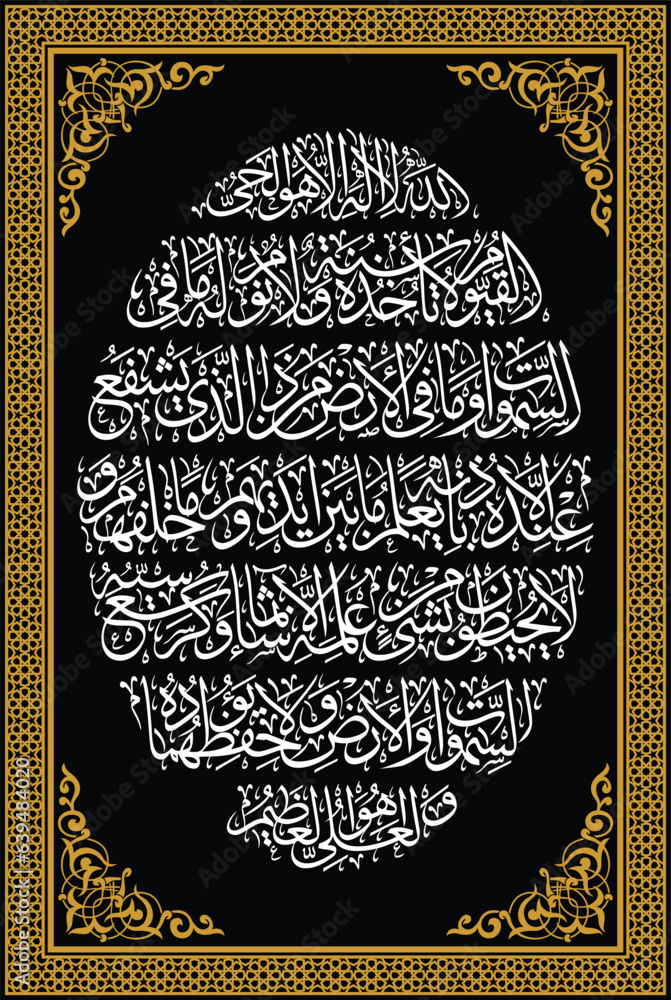 اللَّهُ لَا إِلَٰهَ إِلَّا هُوَ الْحَيُّ
الْقَيُّومُ لَا تَأْخُذُهُ سِنَةٌ وَلَا نَوْمٌ لَهُ مَا فِي
السَّمَوَاتِ وَمَا فِي الْأَرْضِ مَنْ ذَا الَّذِي يَشْفَعُ
عِنْدَهُ إِلَّا بِإِذْنِهِ يَعْلَمُ مَا بَيْنَ أَيْدِيهِمْ وَمَا خَلْفَهُمْ وَ
لَا يُحِيطُونَ بِشَيْءٍ مِنْ عِلْمِهِ إِلَّا بِمَا شَاءَ وَسِعَ كُرْسِيُّهُ
السَّمَوَاتِ وَالْأَرْضَ وَلَا يَئُودُهُ حِفْظُهُمَا
وَهُوَ الْعَلِيُّ الْعَظِيمُ
Adobe Stock | #639484020